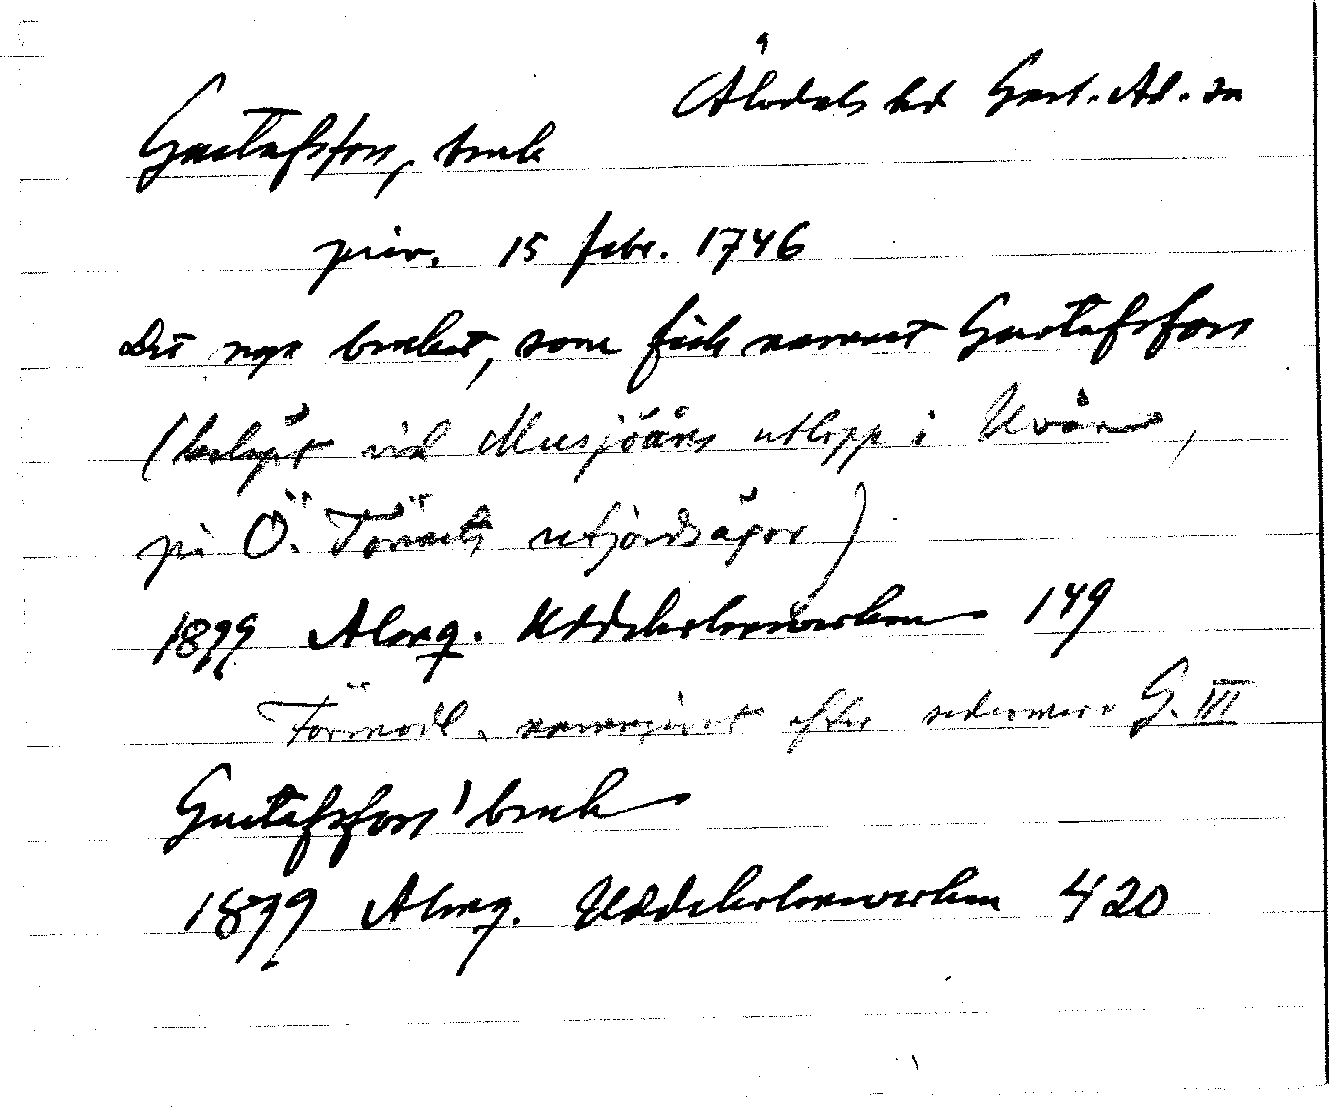 Älvdals hd Gust. Ad. sn
Gustafsfors, bruk
priv. 15 febr. 1746
Det nya bruket, som fick namnet Gustafsfors
(beläget vid Musjöåns utlopp i Uvån,
på Ö. Tönnets utjordsägor)
1899 Almq. Uddeholmsverken 149
Förmodl. namngivet efter sedermera G. III
Gustafsfors' bruk
1899 Almq. Uddeholmsverken 420